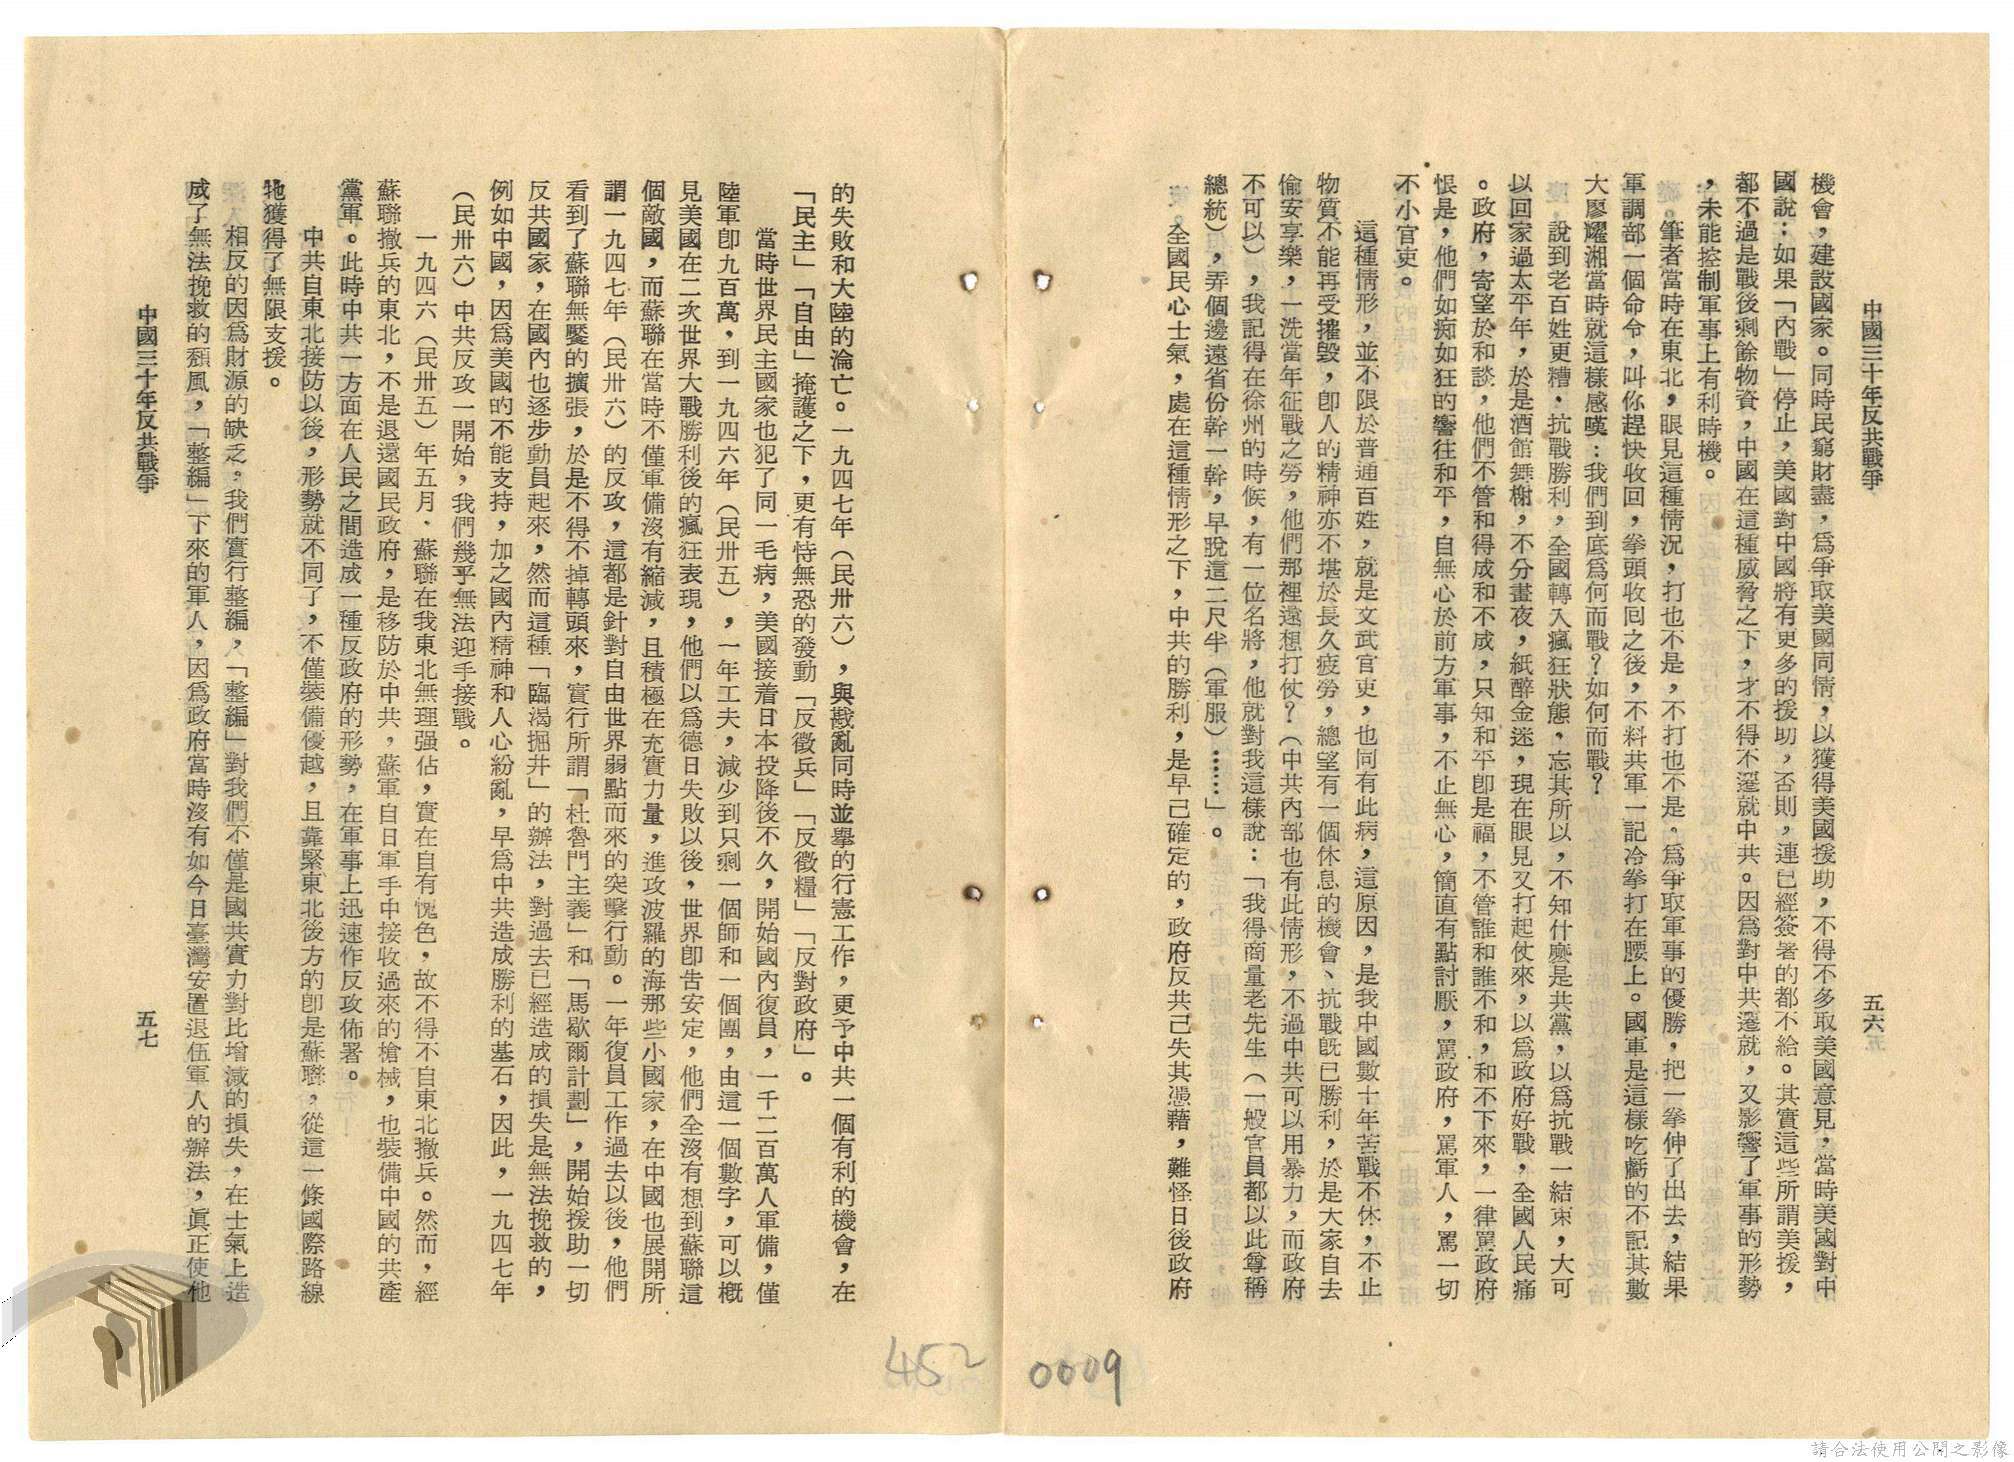 中國三十年反共戰爭
五六
機會，建設國家。同時民窮財盡，爲爭取美國同情，以獲得美國援助，不得不多取美國意見，當時美國對中
國說：如果「內戰」停止，美國對中國將有更多的援助，否則，連已經簽署的都不給。其實這些所謂美援，
都不過是戰後剩餘物資，中國在這種威脅之下，才不得不遷就中共。因爲對中共遷就，又影響了軍事的形勢
，未能控制軍事上有利時機。
筆者當時在東北，眼見這種情況，打也不是，不打也不是。爲爭取軍事的優勝，把一拳伸了出去，結果
軍調部一個命令，叫你趕快收回，拳頭收回之後，不料共軍一記冷拳打在腰上。國軍是這樣吃虧的不記其數
大廖耀湘當時就這樣感嘆：我們到底爲何而戰？如何而戰？
說到老百姓更糟．抗戰勝利，全國轉入瘋狂狀態，忘其所以，不知什麼是共黨，以爲抗戰一結束，大可
以回家過太平年，於是酒館舞榭，不分晝夜，紙醉金迷，現在眼見又打起仗來，以爲政府好戰，全國人民痛
。政府，寄望於和談，他們不管和得成和不成，只知和平卽是福，不管誰和誰不和，和不下來，一律罵政府
恨是，他們如痴如狂的響往和平，自無心於前方軍事，不止無心，簡直有點討厭，罵政府，罵軍人，罵一切
不小官吏。
這種情形，並不限於普通百姓，就是文武官吏，也同有此病，這原因，是我中國數十年苦戰不休，不止
物質不能再受摧毀，卽人的精神亦不堪於長久疲勞，總望有一個休息的機會、抗戰旣已勝利，於是大家自去
偷安享樂，一洗當年征戰之勞，他們那裡還想打仗？（中共內部也有此情形，不過中共可以用暴力，而政府
不可以），我記得在徐州的時候，有一位名將，他就對我這樣說：「我得商量老先生（一般官員都以此尊稱
總統），弄個邊遠省份幹一幹，早脫這二尺半（軍服）……」。
全國民心士氣，處在這種情形之下，中共的勝利，是早已確定的，政府反共已失其憑藉，難怪日後政府
的失敗和大陸的淪亡。一九四七年（民卅六），與戡亂同時並舉的行憲工作，更予中共一個有利的機會，在
「民主」「自由」掩護之下，更有恃無恐的發動「反徵兵」「反徵糧」「反對政府」。
當時世界民主國家也犯了同一毛病，美國接着日本投降後不久，開始國內復員，一千二百萬人軍備，僅
陸軍卽九百萬，到一九四六年（民卅五），一年工夫，減少到只剩一個師和一個團，由這一個數字，可以槪
見美國在二次世界大戰勝利後的瘋狂表現，他們以爲德日失敗以後，世界卽告安定，他們全沒有想到蘇聯這
個敵國，而蘇聯在當時不僅軍備沒有縮減，且積極在充實力量，進攻波羅的海那些小國家，在中國也展開所
謂一九四七年（民卅六）的反攻，這都是針對自由世界弱點而來的突擊行動。一年復員工作過去以後，他們
看到了蘇聯無饜的擴張，於是不得不掉轉頭來，實行所謂「杜魯門主義」和「馬歇爾計劃」，開始援助一切
反共國家，在國內也逐步動員起來，然而這種「臨渴掘井」的辦法，對過去已經造成的損失是無法挽救的，
例如中國，因爲美國的不能支持，加之國內精神和人心紛亂，早爲中共造成勝利的基石，因此，一九四七年
（民卅六）中共反攻一開始，我們幾乎無法迎手接戰。
一九四六（民卅五）年五月．蘇聯在我東北無理强佔，實在自有愧色，故不得不自東北撤兵。然而，經
蘇聯撤兵的東北，不是退還國民政府，是移防於中共，蘇軍自日軍手中接收過來的槍械，也裝備中國的共產
黨軍。此時中共一方面在人民之間造成一種反政府的形勢，在軍事上迅速作反攻佈署。
中共自東北接防以後，形勢就不同了，不僅裝備優越，且靠緊東北後方的卽是蘇聯，從這一條國際路線
牠獲得了無限支援。
相反的因爲財源的缺乏，我們實行整編，「整編」對我們不僅是國共實力對比增減的損失，在士氣上造
成了無法挽救的頹風，「整編」下來的軍人，因爲政府當時沒有如今日臺灣安置退伍軍人的辦法，眞正使他
中國三十年反共戰爭
五七
452
0009
請合法使用公開之影像